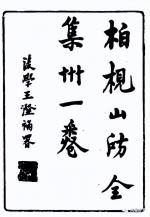 柏梘山房全
集卅一卷
後學王澄福署